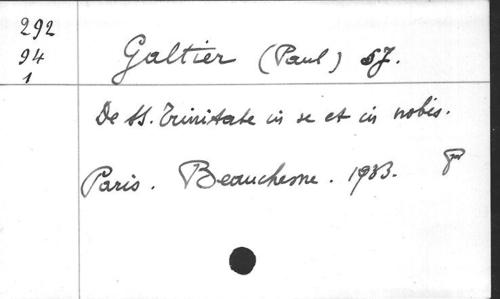 292
94
1
Galtier (Paul) SJ.
De SS. Trinitate in se et in nobis.
Paris. Beauchesne. 1933.